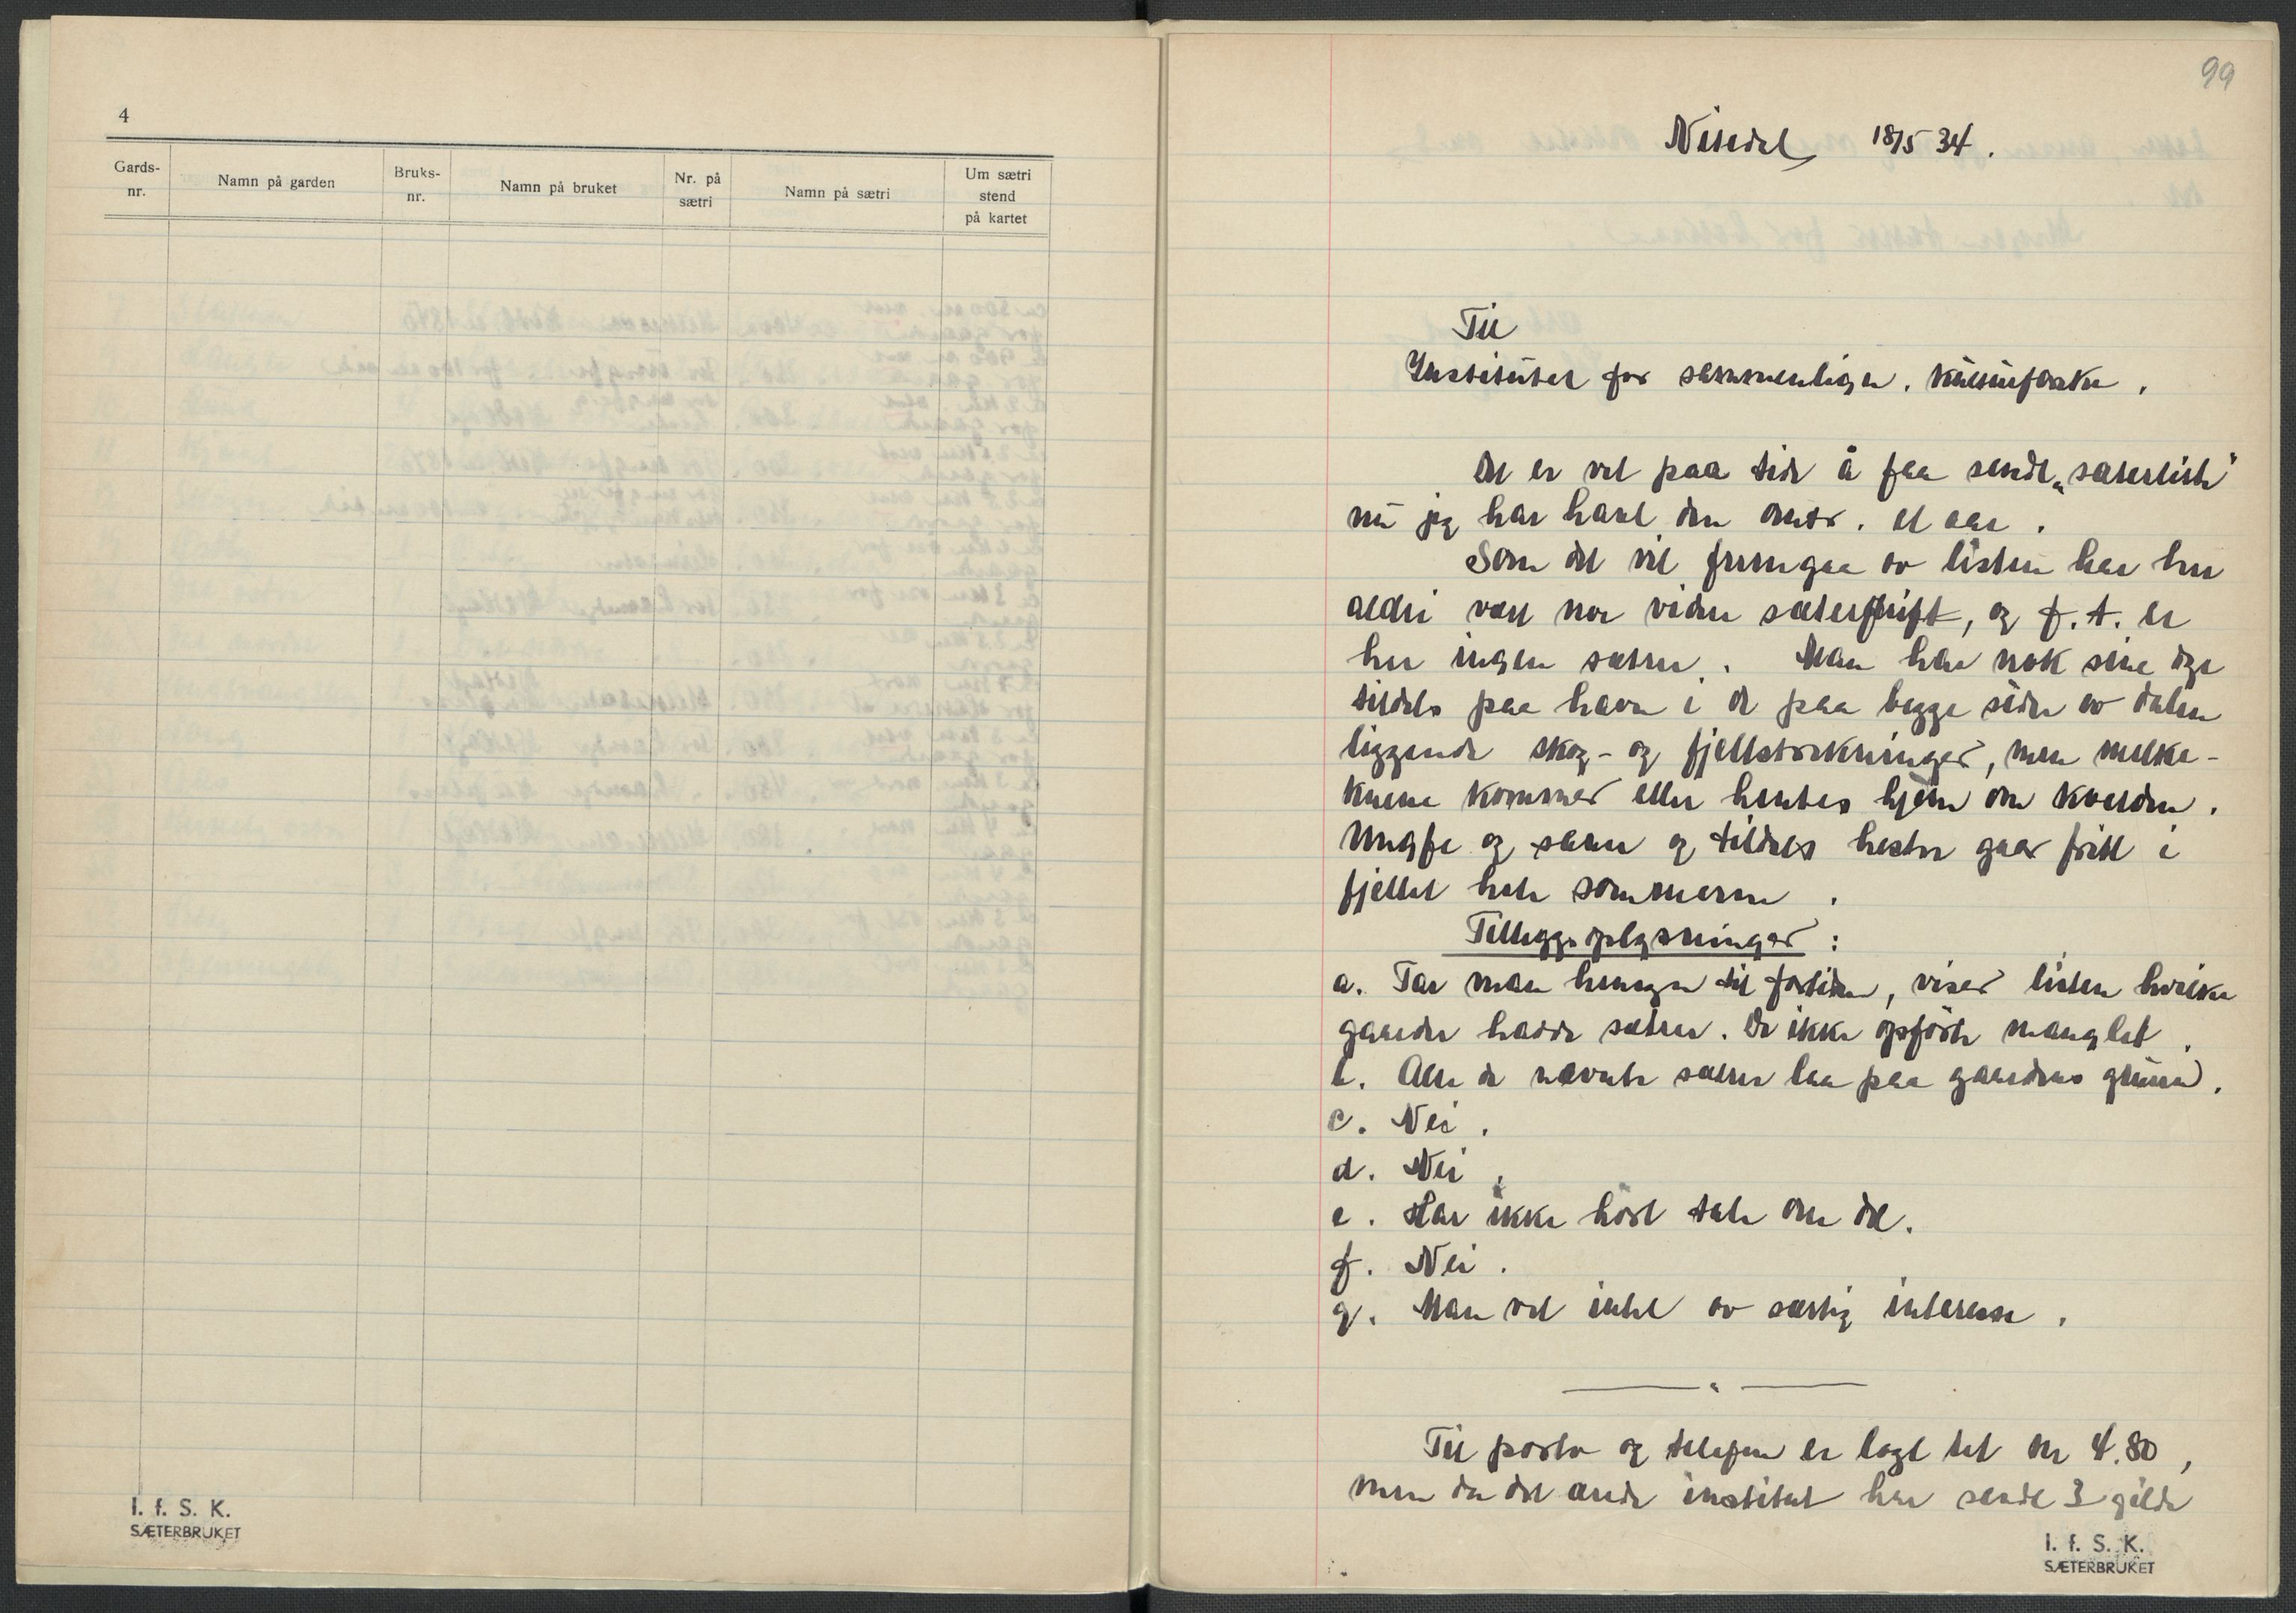 4
Gards-
nr.
Namn på garden
Bruks-
nr.
Namn på bruket
Nr. på
sætri
Namn på sætri
Um sætri
stend
på kartet
I. f. S. K.
SÆTERBRUKET
99
18/5 34.
Til
Institutet for sammenlign. kulturforskn.
Det er vel paa tide å faa sendt „sæterliste"
nu jeg har havt den omtr. et aar.
Som det vil fremgaa av listen har her
aldri vært noe videre sæterdrift, og f. t. er
her ingen sætrer. Man har nok sine dyr
tildels paa havn i de paa begge sider av dalen
liggende skog- og fjellstrekninger, men melke-
kuene kommer eller hentes hjem om kvelden.
Ungfe og sauer og tildels hester gaar fritt i
fjellet hele sommeren.
Tilleggsoplysninger:
a. Tar man hensyn til fortiden, viser listen hvilke
gaarder hadde sætrer. De ikke opførte manglet.
b. Alle de nevnte sætrer laa paa gaardens grunn.
c. Nei.
d. Nei.
e. Har ikke hørt tale om det.
f. Nei.
g. Man vet intet av særlig interesse.
Til porto og telefon er lagt ut kr 4.80,
men da det ærede institut har sendt 3 gilde
I. f. S. K.
SÆTERBRUKET